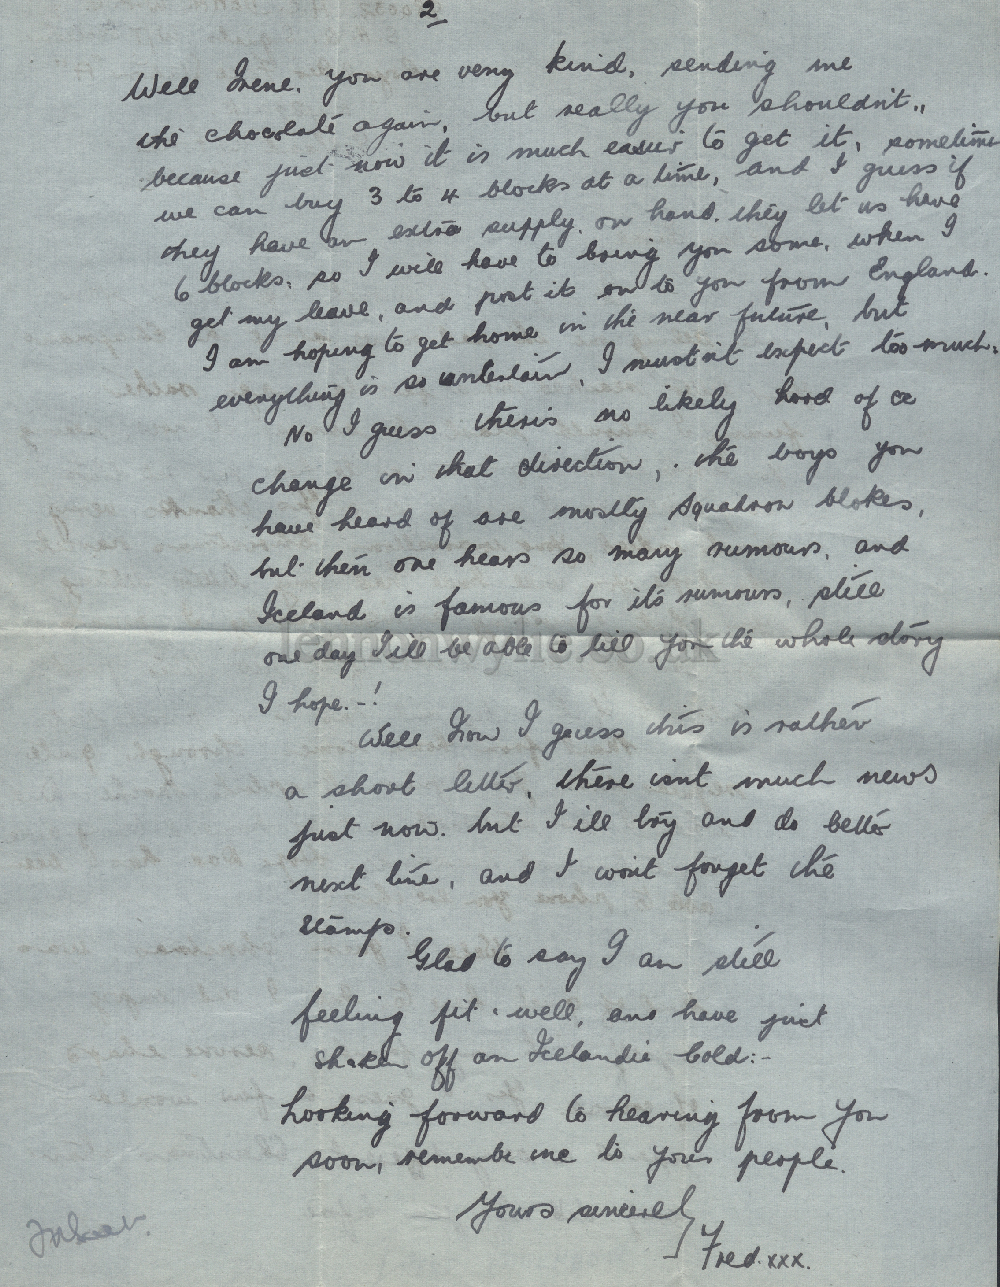 2
Well Irene, you are very kind, sending me
the chocolate again, but really you shouldn't.,
because just now it is much easier to get it, sometime
we can buy 3 to 4 blocks at a time, and I guess if
they have an extra supply. on hand. they let us have
6 blocks, so I will have to bring you some, when I
get my leave, and post it on to you from England.
I am hoping to get home in the near future, but
everything is so uncertain, I mustn't expect too much.
No I guess theris no likely hood of a
change in that direction, the boys you
have heard of are mostly Squadron blokes,
but then one hears so many rumours, and
Iceland is famous for it's rumours, still
one day I'ill be able to tell you the whole story
I hope. - !
lennonwylie.co.uk
Well now I guess this is rather
a short letter, there isnt much news
just now. but I ill try and do better
next time, and I won't forget the
stamps.
Glad to say I am still
feeling fit & well, and have just
shaken off an Icelandic Cold:-
Looking forward to hearing from you
soon, remember me to your people.
Yours sincerely
Fred. xxx.